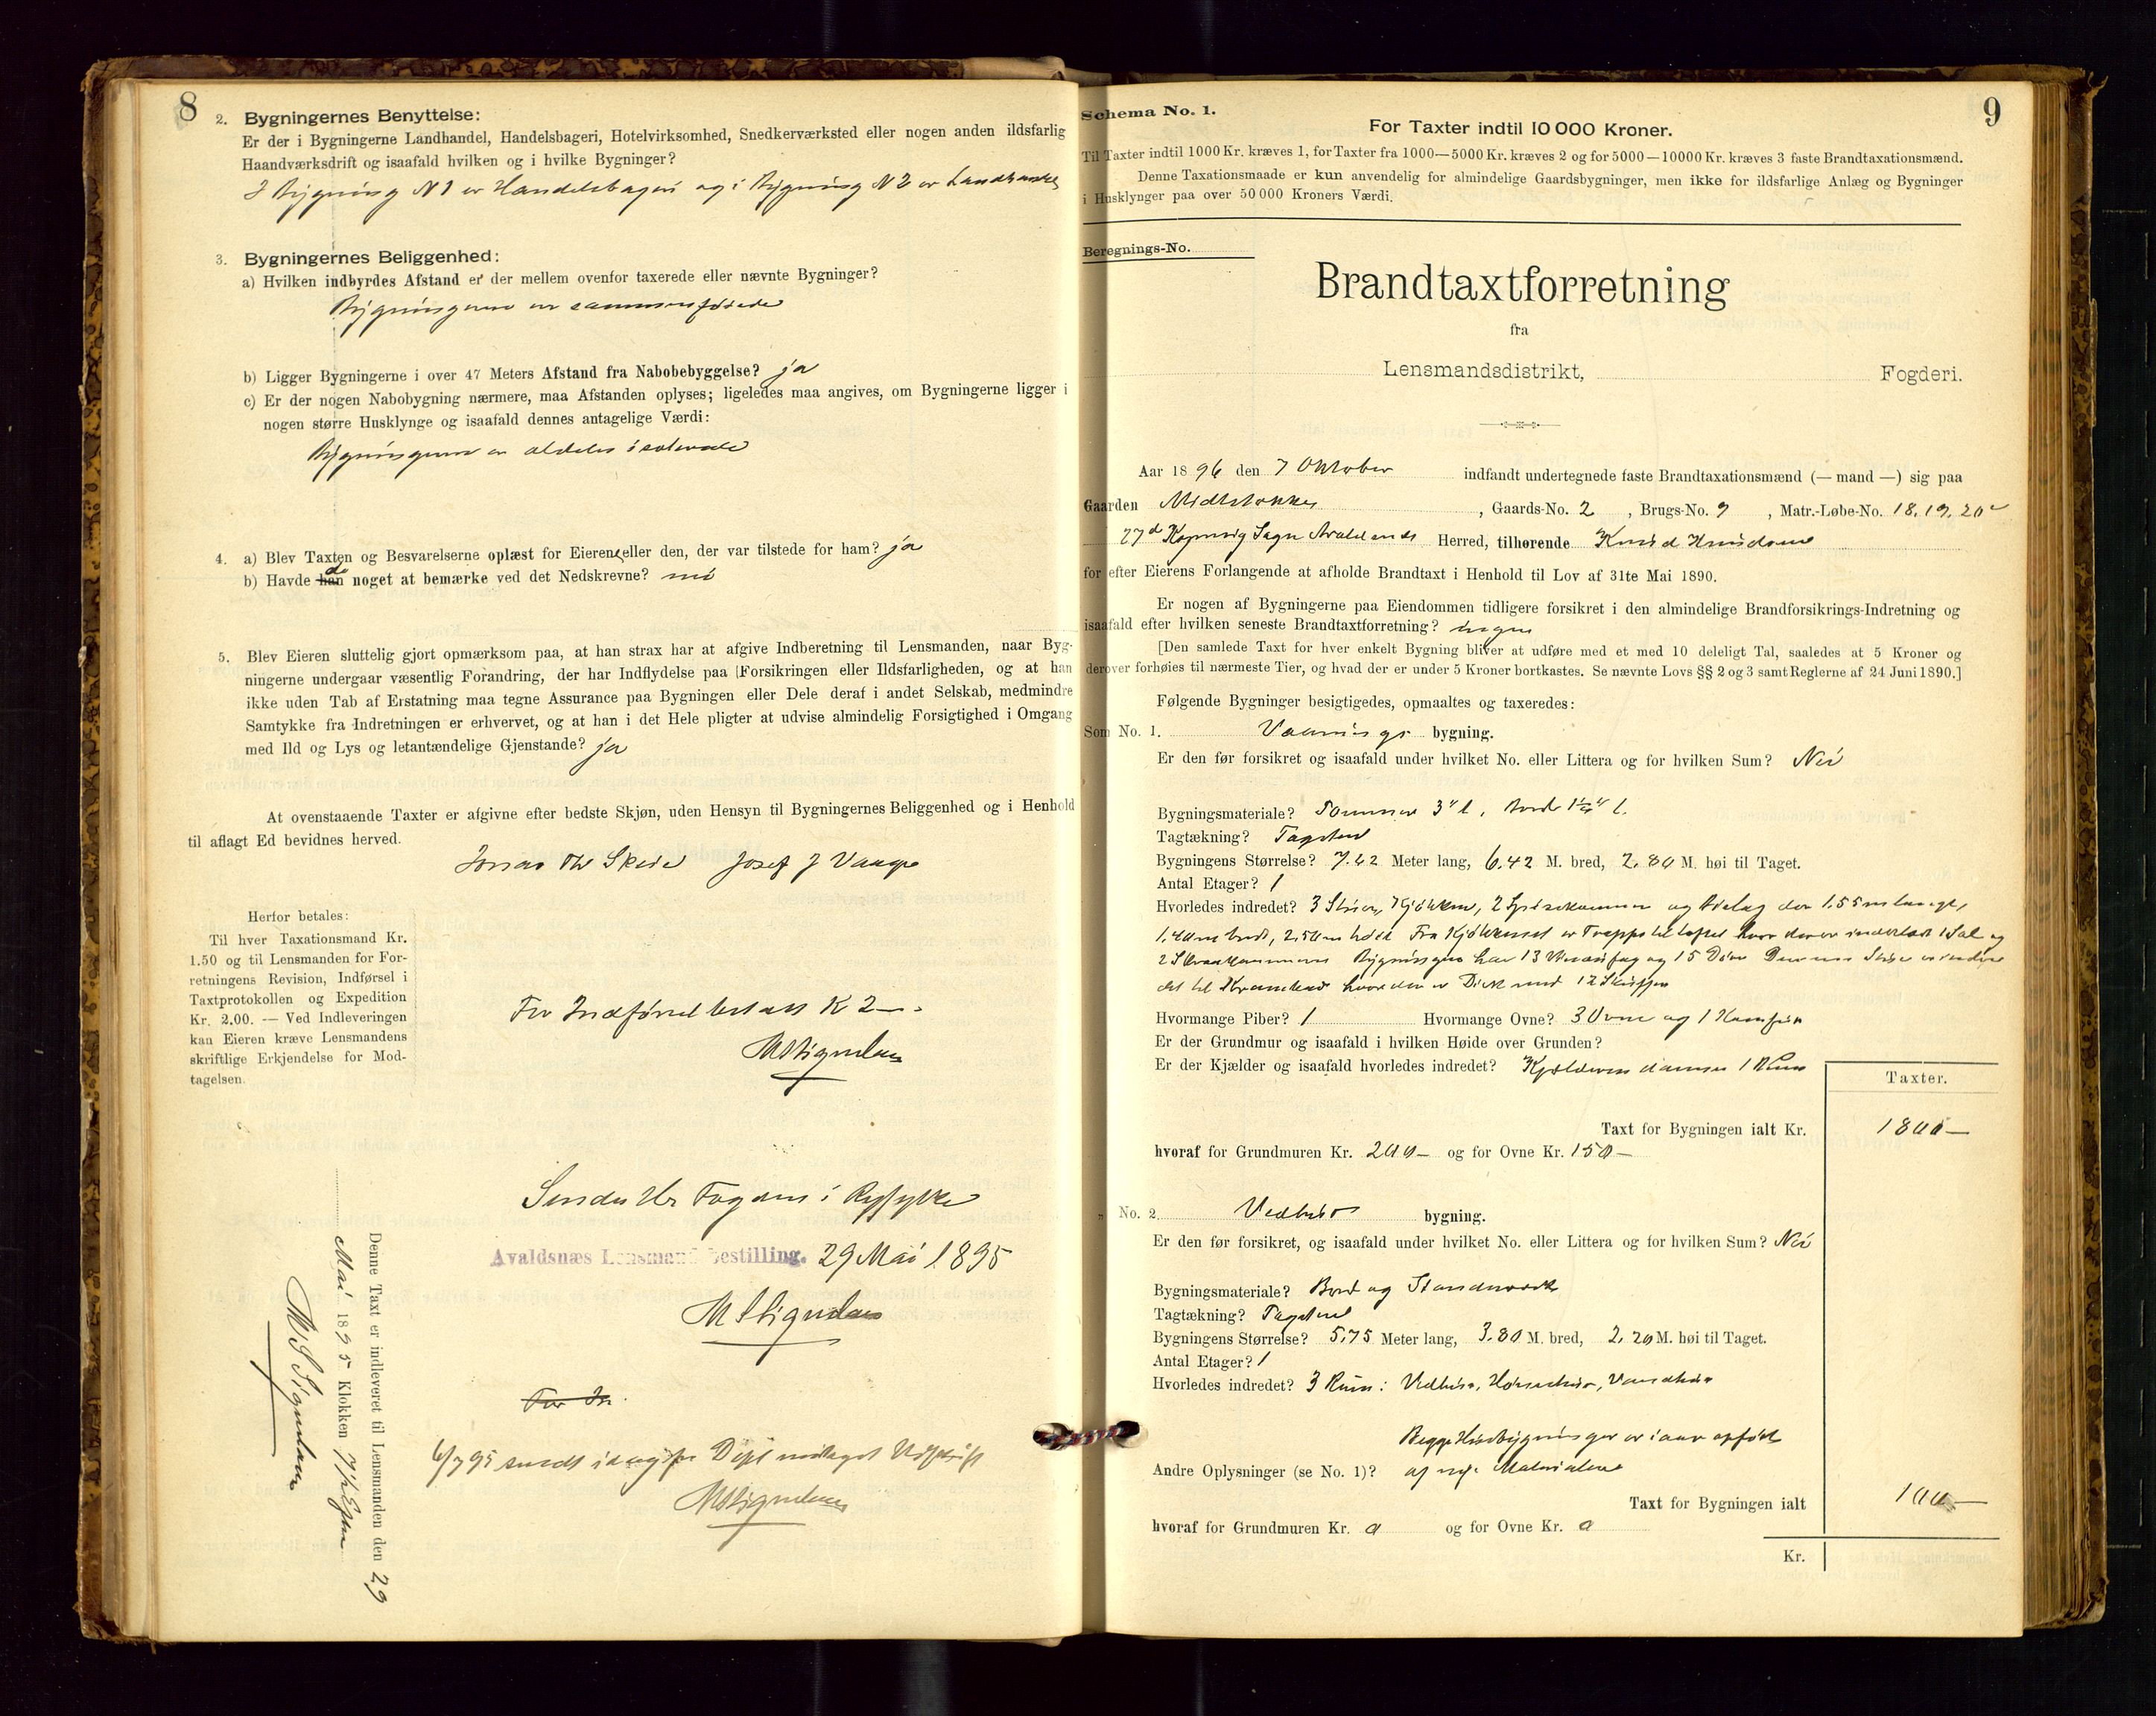 8
2. Bygningernes Benyttelse:
Er der i Bygningerne Landhandel, Handelsbageri, Hotelvirksomhed, Snedkerværksted eller nogen anden ildsfarlig
Haandværksdrift og isaafald hvilken og i hvilke Bygninger?
I Bygning N 1 er Handelsbageri og i Bygning N 2 er Landhandel
3. Bygningernes Beliggenhed:
a) Hvilken indbyrdes Afstand er der mellem ovenfor taxerede eller nævnte Bygninger?
Bygningerne er
b) Ligger Bygningerne i over 47 Meters Afstand fra Nabobebyggelse? ja
c) Er der nogen Nabobygning nærmere, maa Afstanden oplyses; ligeledes maa angives, om Bygningerne ligger i
nogen større Husklynge og isaafald dennes antagelige Værdi:
Bygningerne er aldeles isolerede
4. a) Blev Taxten og Besvarelserne oplæst for Eieren eller den, der var tilstede for ham? ja
b) Havde han de noget at bemærke ved det Nedskrevne? nei
5. Blev Eieren sluttelig gjort opmærksom paa, at han strax har at afgive Indberetning til Lensmanden, naar Byg-
ningerne undergaar væsentlig Forandring, der har Indflydelse paa Forsikringen eller Ildsfarligheden, og at han
ikke uden Tab af Erstatning maa tegne Assurance paa Bygningen eller Dele deraf i andet Selskab, medmindre
Samtykke fra Indretningen er erhvervet, og at han i det Hele pligter at udvise almindelig Forsigtighed i Omgang
med Ild og Lys og letantændelige Gjenstande? ja
At ovenstaaende Taxter er afgivne efter bedste Skjøn, uden Hensyn til Bygningernes Beliggenhed og i Henhold
til aflagt Ed bevidnes herved.
Jonas Skeie Josef J Vaage
Herfor betales:
Til hver Taxationsmand Kr.
1.50 og til Lensmanden for For-
retningens Revision, Indførsel i
Taxtprotokollen og Expedition
Kr. 2.00. — Ved Indleveringen
kan Eieren kræve Lensmandens
skriftlige Erkjendelse for Mod-
tagelsen.
For Indførsel betalt K 2 —
Sendes Hr Fogden i Ryfylke
Avaldsnæs Lensmandsbestilling. 29 Mai 1895
For In
Denne Taxt er indleveret til Lensmanden den 29
Mai 1895 Klokken
9
Schema No. 1.
For Taxter indtil 10 000 Kroner.
Til Taxter indtil 1000 Kr. kræves 1, for Taxter fra 1000—5000 Kr. kræves 2 og for 5000—10000 Kr. kræves 3 faste Brandtaxationsmænd.
Denne Taxationsmaade er kun anvendelig for almindelige Gaardsbygninger, men ikke for ildsfarlige Anlæg og Bygninger
i Husklynger paa over 50 000 Kroners Værdi.
Beregnings-No.
Brandtaxtforretning
fra
Lensmandsdistrikt, Fogderi.
Aar 1896 den 7 Oktober indfandt undertegnede faste Brandtaxationsmænd (— mand —) sig paa
Gaarden Midtstokke, Gaards-No. 2, Brugs-No. 9, Matr.-Løbe-No. 18. 19. 20
27d Kopervig Sogn Avaldsnes Herred, tilhørende Knud Knudsen
for efter Eierens Forlangende at afholde Brandtaxt i Henhold til Lov af 31te Mai 1890.
Er nogen af Bygningerne paa Eiendommen tidligere forsikret i den almindelige Brandforsikrings-Indretning og
isaafald efter hvilken seneste Brandtaxtforretning? ingen
[Den samlede Taxt for hver enkelt Bygning bliver at udføre med et med 10 deleligt Tal, saaledes at 5 Kroner og
derover forhøies til nærmeste Tier, og hvad der er under 5 Kroner bortkastes. Se nævnte Lovs §§ 2 og 3 samt Reglerne af 24 Juni 1890.]
Følgende Bygninger besigtigedes, opmaaltes og taxeredes:
Som No. 1. Vaanings bygning.
Er den før forsikret og isaafald under hvilket No. eller Littera og for hvilken Sum? Nei
Bygningsmateriale? Tømmer 3"
Tagtækning? Tagsten
Bygningens Størrelse? 7.42 Meter lang, 6.42 M. bred, 2.80 M. høi til Taget.
Antal Etager? 1
Hvorledes indredet? 3 Stuer, Kjøkken, 2 Spisekammer og Bislag der 1.55 m langt,
1.40 m bredt, 2.50 m høit Fra Kjøkkenet er Trappe til Loftet hvor der er indredet 1 Sal og
2 Kammere Bygningen har 13 Vinduesfag og 15 Døre
det til Kramled hvor der er Disk med 12 Skuffer
Hvormange Piber? 1 Hvormange Ovne? 3 Ovne og 1 Komfur
Er der Grundmur og isaafald i hvilken Høide over Grunden?
Er der Kjælder og isaafald hvorledes indredet? Kjælderen danner 1 Rum
Taxter.
Taxt for Bygningen ialt Kr. 1800 —
hvoraf for Grundmuren Kr. 200 — og for Ovne Kr. 150 —
" No. 2 Vedhus bygning.
Er den før forsikret, og isaafald under hvilket No. eller Littera og for hvilken Sum? Nei
Bygningsmateriale? Bord og Standværk
Tagtækning? Tagsten
Bygningens Størrelse? 5.75 Meter lang, 3.80 M. bred, 2.20 M. høi til Taget.
Antal Etager? 1
Hvorledes indredet? 3 Rum: Vedhus, Hønsehus, Vandhus
Begge Husebygninger er iaar opført
Andre Oplysninger (se No. 1)? af nye Materialer
Taxt for Bygningen ialt 100 —
hvoraf for Grundmuren Kr. 0 og for Ovne Kr. 0
Kr.